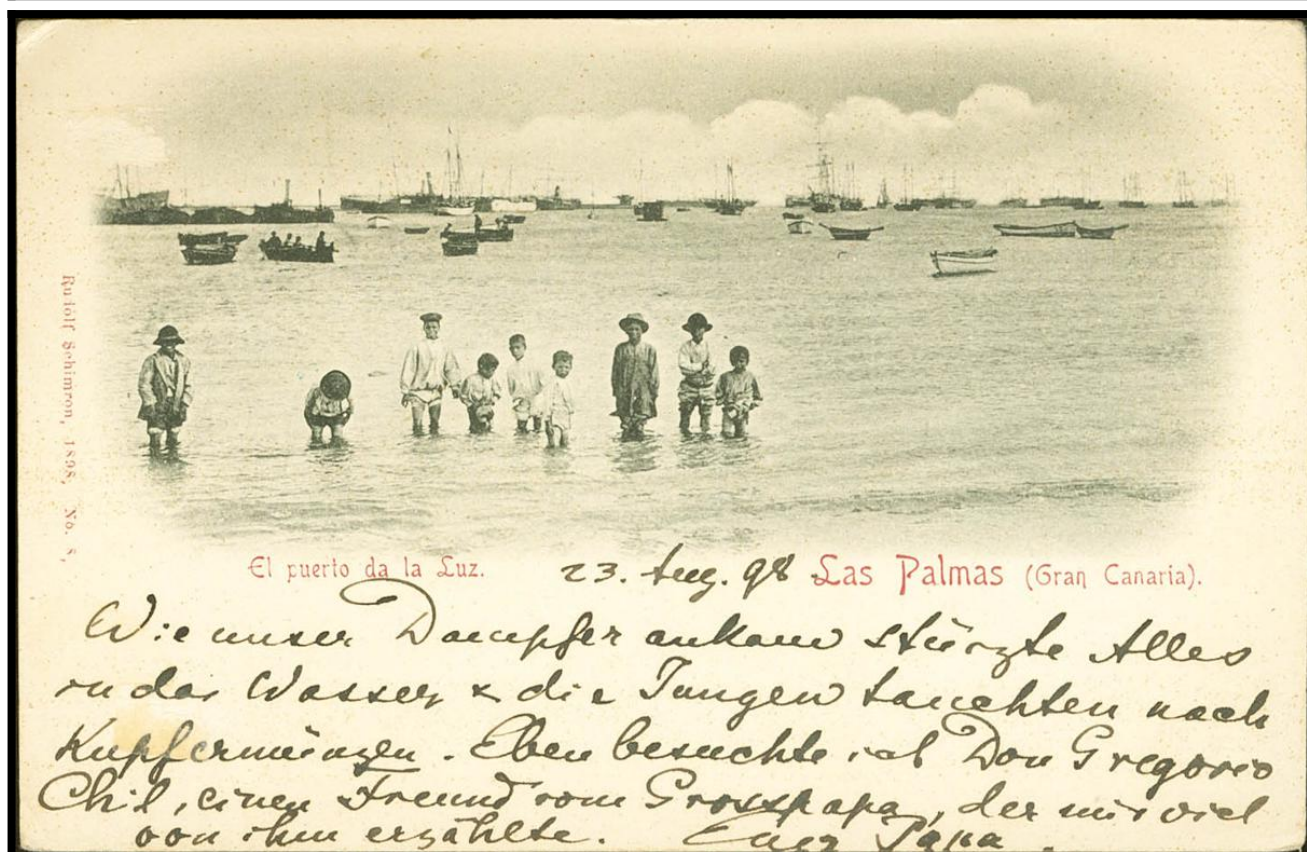 Rudolf Schimron, 1898, No. 8,
El puerto da la Luz. 23. Aug. 98 Las Palmas (Gran Canaria).
Wie unser Dampfer ankam stürzte Alles
in das Wasser & die Jungen tauchten nach
Kupfermünzen. Eben besuchte ich Don Gregorio
Chil, einen Freund vom Grosspapa, der mir viel
von ihm erzählte. Euer Papa.